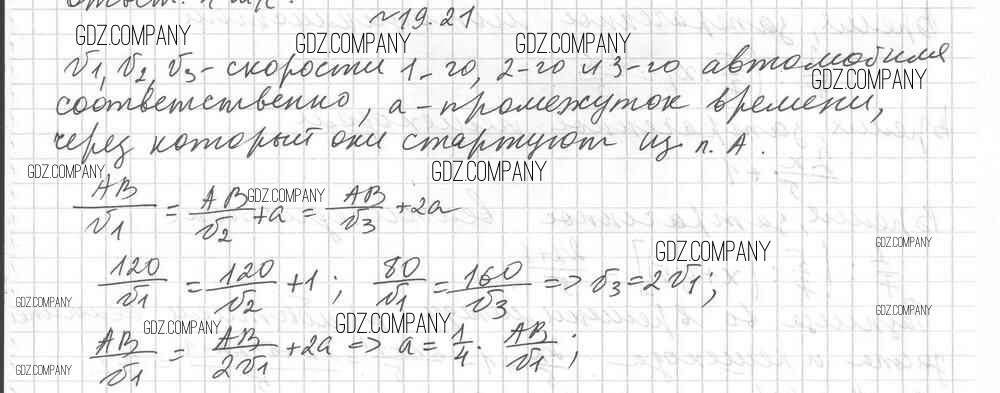 ~19.21
GDZ.COMPANY GDZ.COMPANY GDZ.COMPANY
v1, v2, v3 - скорости 1-го, 2-го и 3-го автомобиля
GDZ.COMPANY
соответственно, a - промежуток времени,
через который они стартуют из п. А.
GDZ.COMPANY GDZ.COMPANY
AB/v1 = AB/v2 + a = AB/v3 + 2a
GDZ.COMPANY
GDZ.COMPANY GDZ.COMPANY
120/v1 = 120/v2 + 1 ; 80/v1 = 160/v3 => v3 = 2v1 ;
GDZ.COMPANY GDZ.COMPANY
GDZ.COMPANY GDZ.COMPANY
AB/v1 = AB/2v1 + 2a => a = 1/4 · AB/v1 ;
GDZ.COMPANY